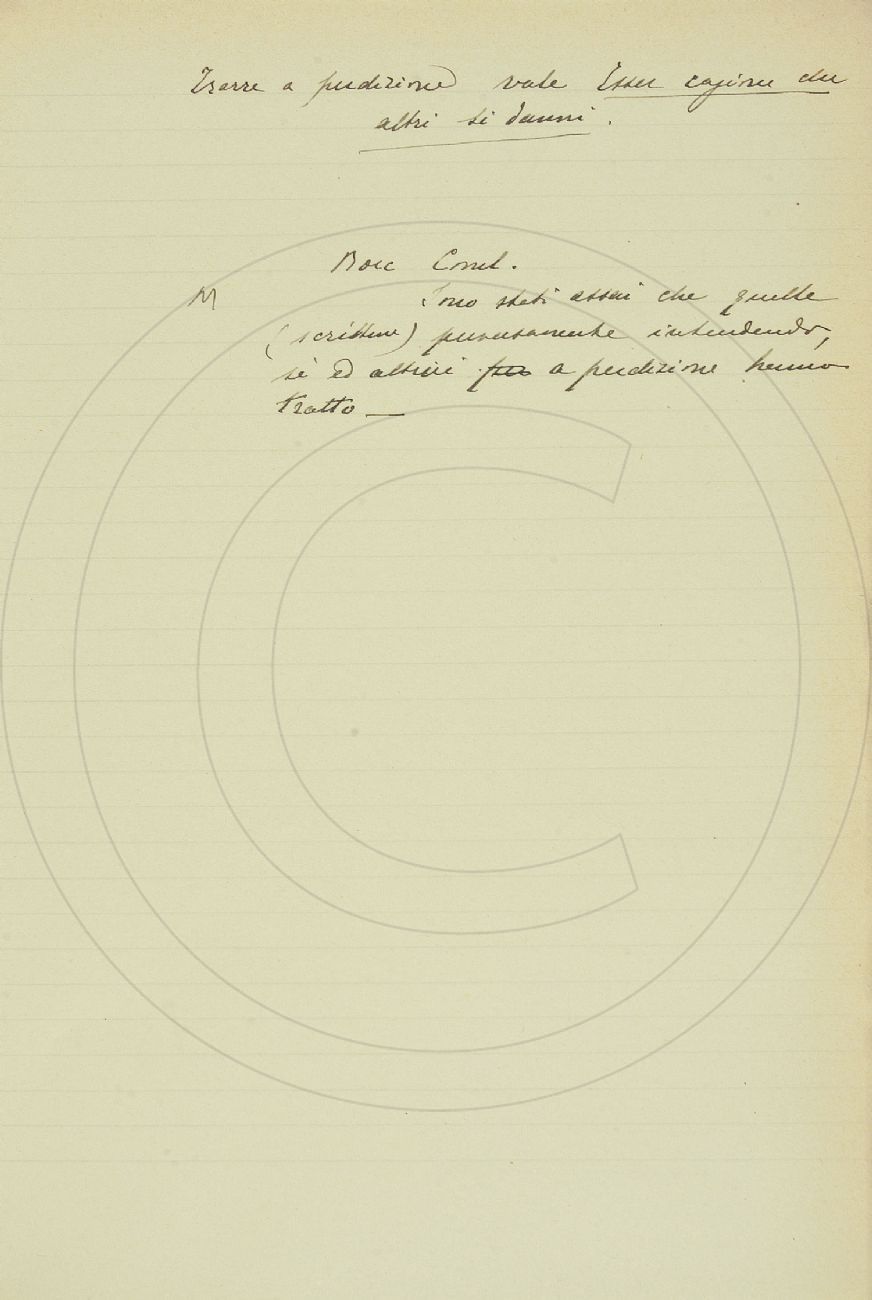 Trarre a perdizione vale Esser cagione che
altri si danni.
Bocc Concl.
M Sono stati assai che quelle
(scritture) perversamente intendendo,
sè ed altrui per a perdizione hanno
tratto —